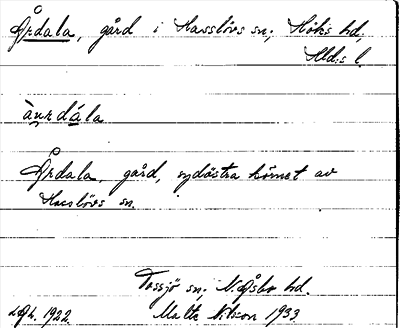 Årdala, gård i Hasslövs sn, Höks hd,
Hld:s l.
àu̯rdála
Årdala, gård, sydöstra hörnet av
Hasslövs sn.
Tossjö sn, N. Åsbo hd.
1922. Malte Nilsson 1933